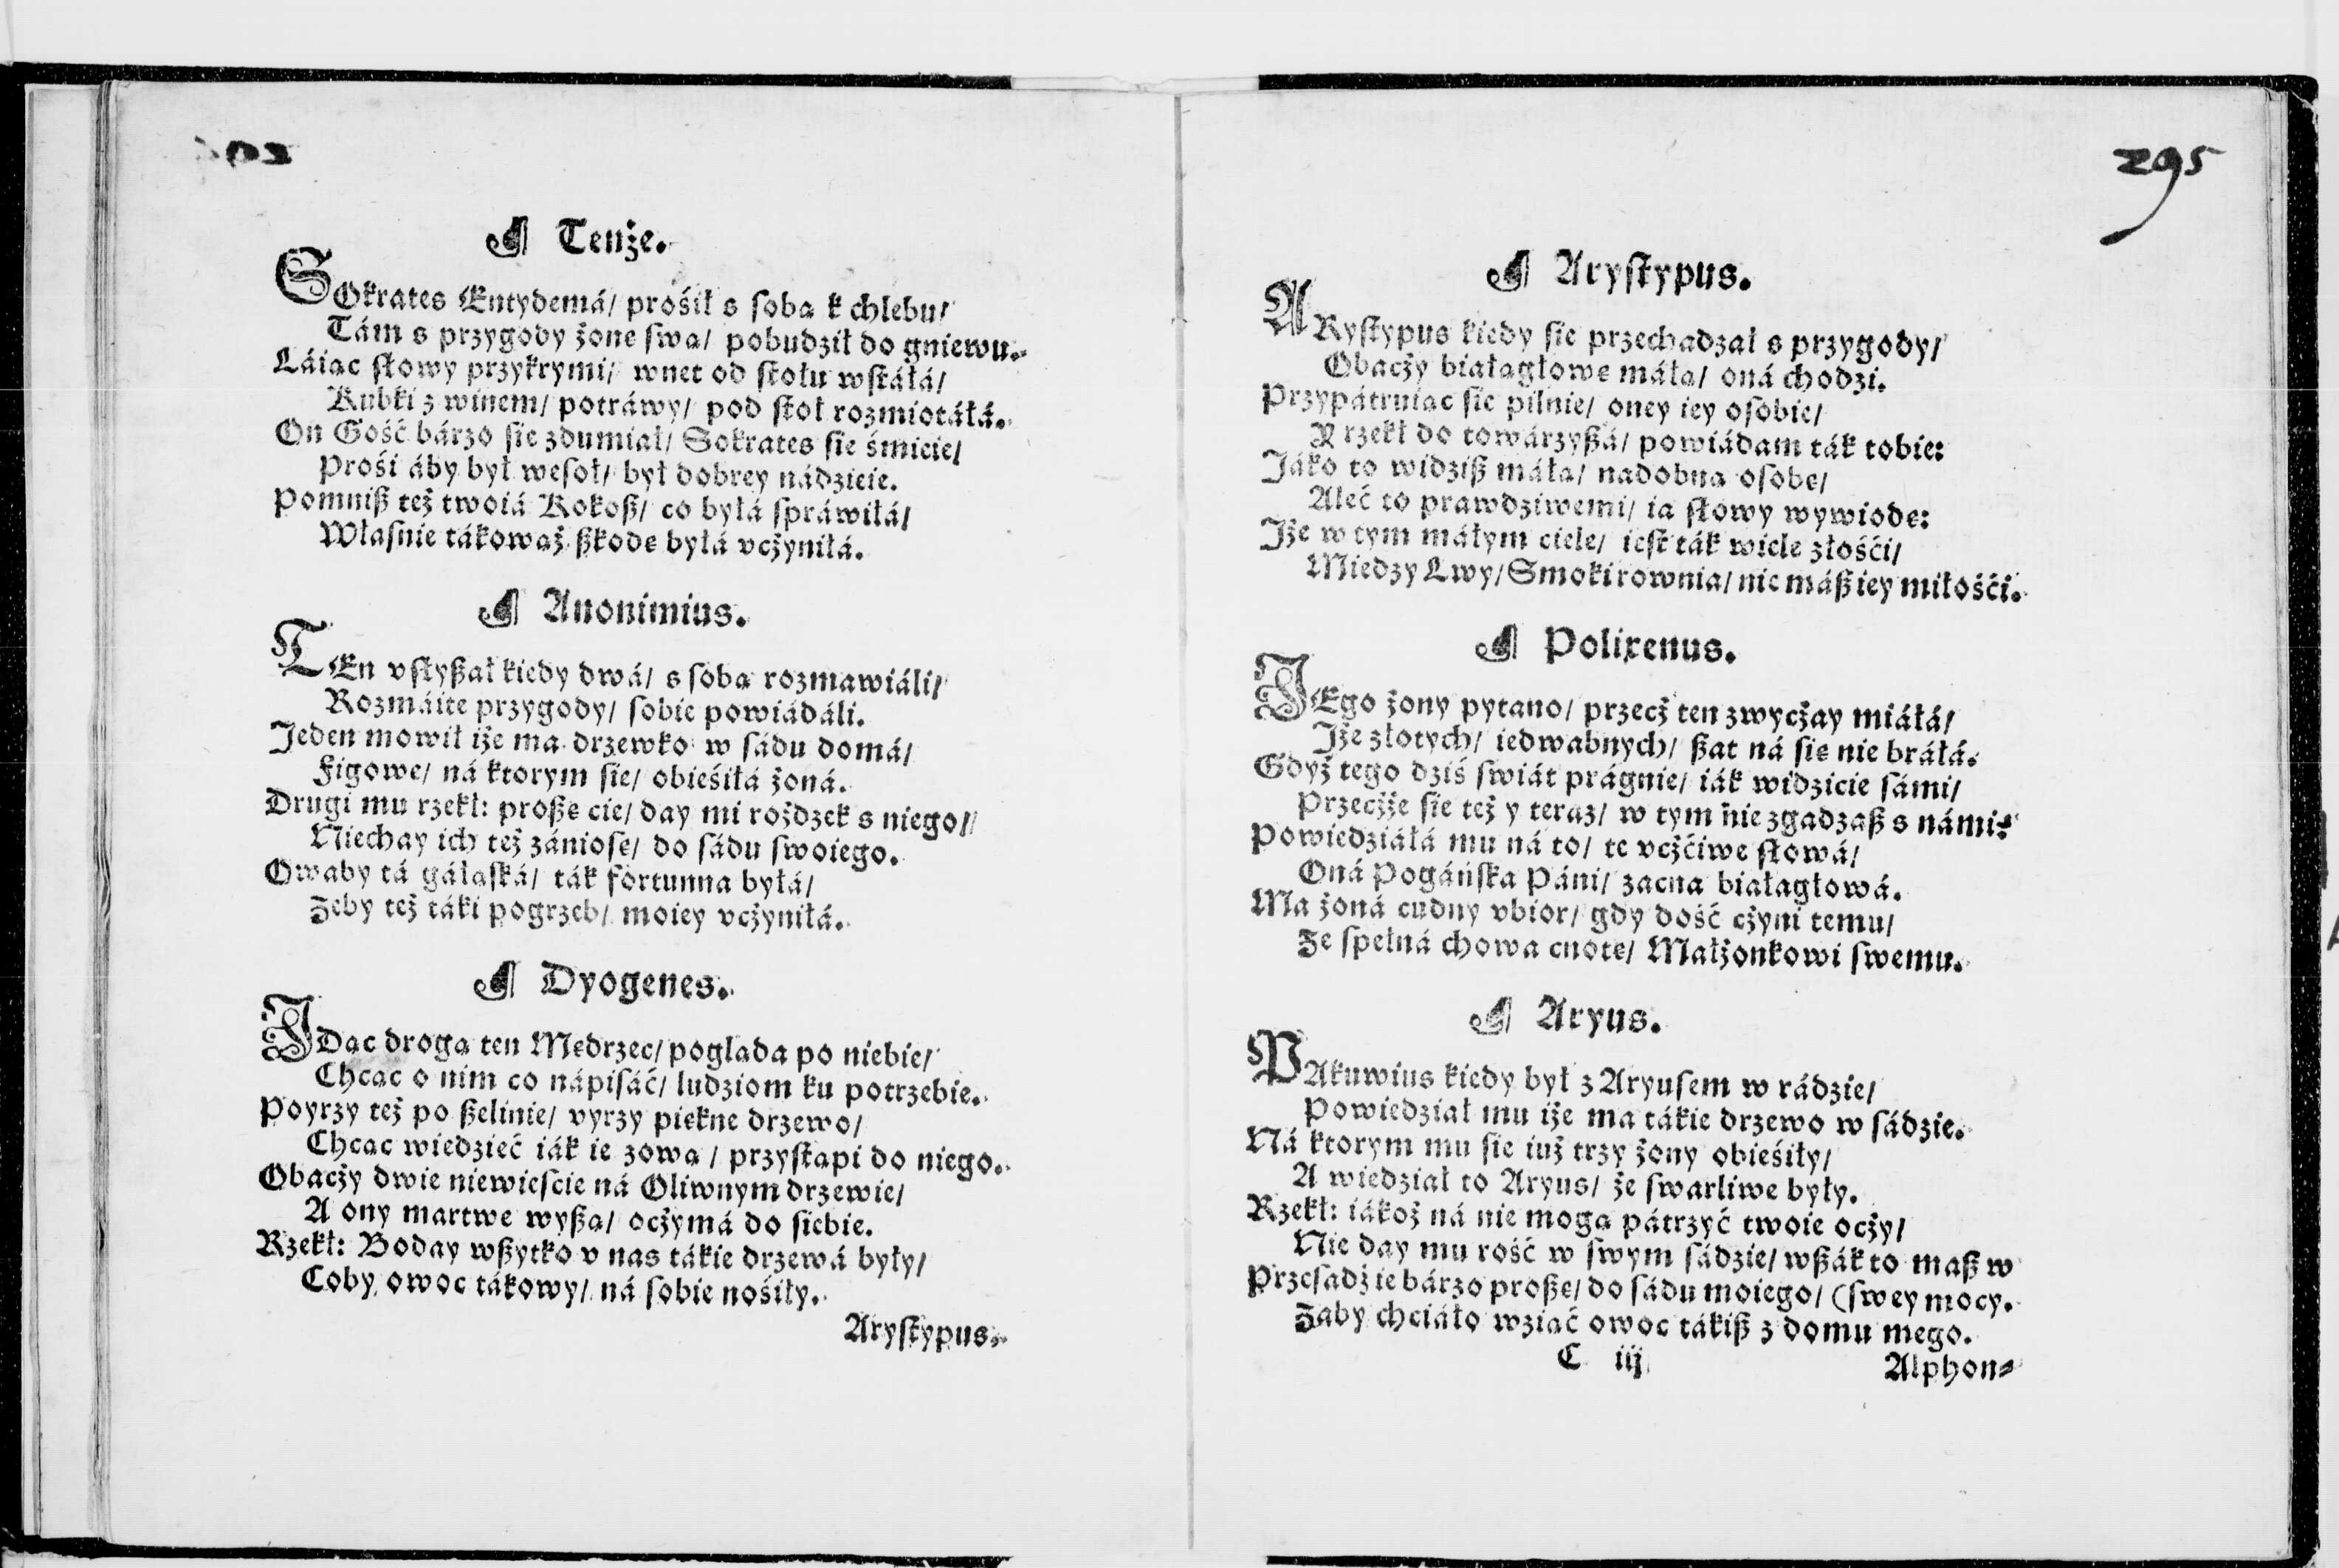 Tenże.
SOkrates Entydemá/ prośił s ſoba k chlebu/
Tám s przygody żone ſwa/ pobudził do gniewu.
Láiac ſłowy przykrymi/ wnet od ſtołu wſtáłá/
Kubki z winem/ potráwy/ pod ſtoł rozmiotáłá.
On Gość bárzo ſie zdumiał/ Sokrates ſie śmieie/
Prośi áby był weſoł/ był dobrey nádzieie.
Pomniß też twoiá Kokoß/ co byłá ſpráwiłá/
Właſnie tákoważ ßkode byłá vcżyniłá.
Anonimius.
TEn vſłyßał kiedy dwá/ s ſoba rozmawiáli/
Rozmáite przygody/ ſobie powiádáli.
Jeden mowił iże ma drzewko w ſádu domá/
Figowe/ ná ktorym ſie/ obieśiłá żoná.
Drugi mu rzekł: proße cie/ day mi rożdzek s niego/
Niechay ich też zánioſe/ do ſádu ſwoiego.
Owaby tá gáłaſká/ ták fortunna byłá/
Zeby też táki pogrzeb/ moiey vcżyniłá.
Dyogenes.
IDac droga ten Medrzec/ poglada po niebie/
Chcac o nim co nápiſáć/ ludziom ku potrzebie.
Poyrzy też po ßelinie/ vyrzy piekne drzewo/
Chcac wiedzieć iák ie zowa/ przyſtapi do niego.
Obacży dwie niewieſcie ná Oliwnym drzewie/
A ony martwe wyßa/ ocżymá do ſiebie.
Rzekł: Boday wßytko v nas tákie drzewá były/
Coby owoc tákowy/ ná ſobie nośiły.
Aryſtypus.
295
Aryſtypus.
ARyſtypus kiedy ſie przechadzał s przygody/
Obacży białagłowe máła/ oná chodzi.
Przypátruiac ſie pilnie/ oney iey oſobie/
Y rzekł do towárzyßá/ powiádam ták tobie:
Jáko to widziß máła/ nadobna oſobe/
Aleć to prawdziwemi/ ia ſłowy wywiode:
Jże w tym máłym ciele/ ieſt ták wiele złośći/
Miedzy Lwy/ Smoki rownia/ nie máß iey miłośći.
Polixenus.
JEgo żony pytano/ przecż ten zwycżay miáłá/
Jże złotych/ iedwabnych/ ßat ná ſie nie bráłá.
Gdyż tego dziś ſwiát prágnie/ iák widzicie ſámi/
Przecżże ſie też y teraz/ w tym nie zgadzaß s námi?
Powiedziáłá mu ná to/ te vcżćiwe ſłowá/
Oná Pogáńſka Páni/ zacna białagłowá.
Ma żoná cudny vbior/ gdy dość cżyni temu/
Ze ſpełná chowa cnote/ Małżonkowi ſwemu.
Aryus.
PAkuwius kiedy był z Aryuſem w rádzie/
Powiedział mu iże ma tákie drzewo w ſádzie.
Ná ktorym mu ſie iuż trzy żony obieśiły/
A wiedział to Aryus/ że ſwarliwe były.
Rzekł: iákoż ná nie moga pátrzyć twoie ocży/
Nie day mu rość w ſwym ſádzie/ wßák to maß w
Przeſadż ie bárzo proße/ do ſádu moiego/ (ſwey mocy.
Zaby chciáło wziać owoc tákiß z domu mego.
C iij
Alphon⸗